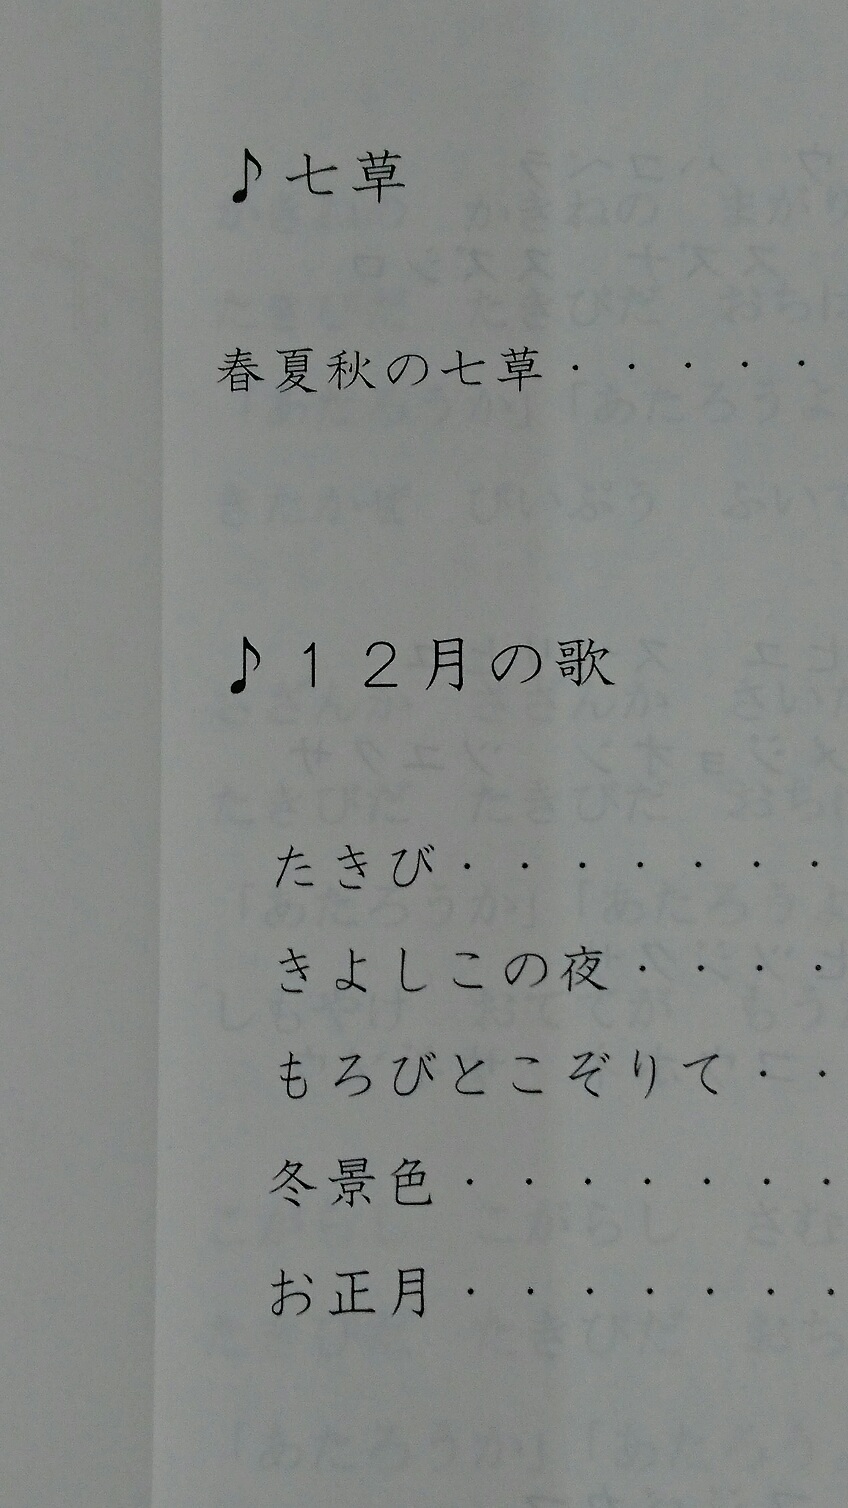 ♪七草
春夏秋の七草・・・・・
♪１２月の歌
たきび・・・・・・・
きよしこの夜・・・・
もろびとこぞりて・・
冬景色・・・・・・・
お正月・・・・・・・